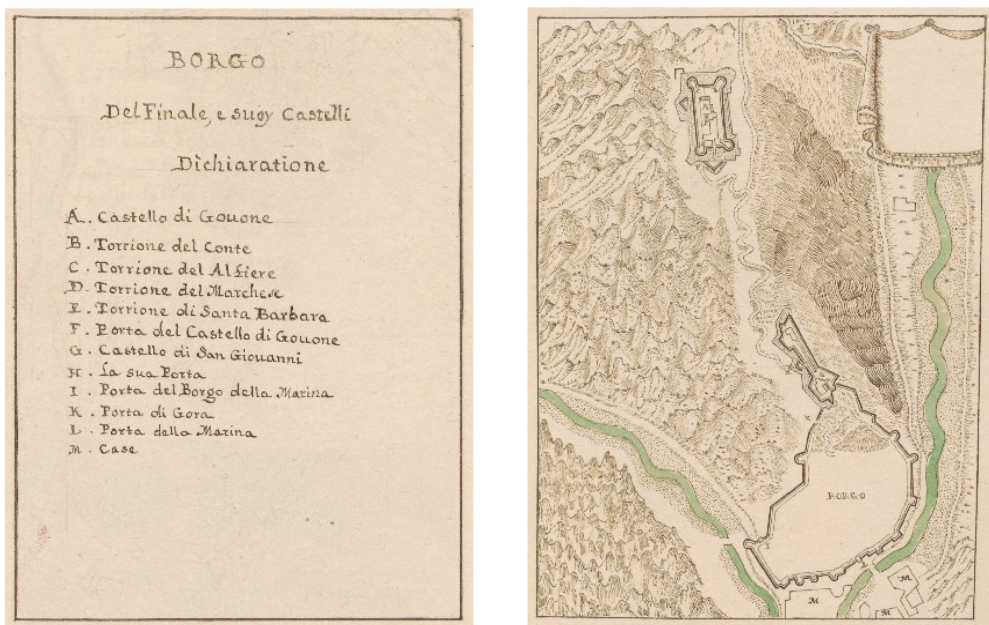 BORGO
Del Finale, e suoy Castelli
Dichiaratione
A. Castello di Gouone
B. Torrione del Conte
C. Torrione del Alfiere
D. Torrione del Marchese
E. Torrione di Santa Barbara
F. Porta del Castello di Gouone
G. Castello di San Giouanni
H. La sua Porta
I. Porta del Borgo della Marina
K. Porta di Gora
L. Porta della Marina
M. Case
K
BORGO
M
M
M